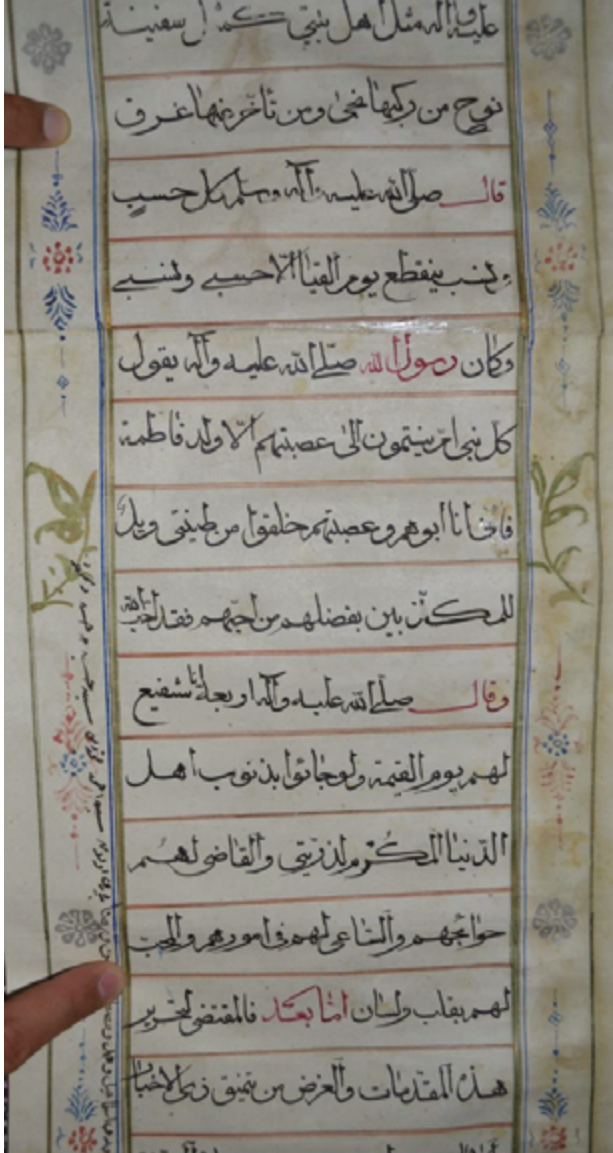 عليه واله مثل اهل بيتي كمثل سفينة
نوح من ركبها نجى ومن تأخر عنها غرق
قال صلى الله عليه واله وسلم كل حسب
ونسب ينقطع يوم القيامة الا حسبي ونسبي
وكان رسول الله صلى الله عليه وآله يقول
كل نبي ام ينتمون الى عصبتهم الا ولد فاطمة
فانى انا ابوهم وعصبتهم خلقوا من طينتي ويل
للمكذبين بفضلهم من احبهم فقد احب الله
وقال صلى الله عليه وآله اربعة انا شفيع
لهم يوم القيمة ولو جائوا بذنوب اهل
الدنيا المكرم لذريتي والقاضى لهم
حوائجهم والساعى لهم فى امورهم والمحب
لهم بقلب ولسان اما بعد فالمقتضى لتحرير
هذه المقدمات والغرض من تنميق ذى الاخبار